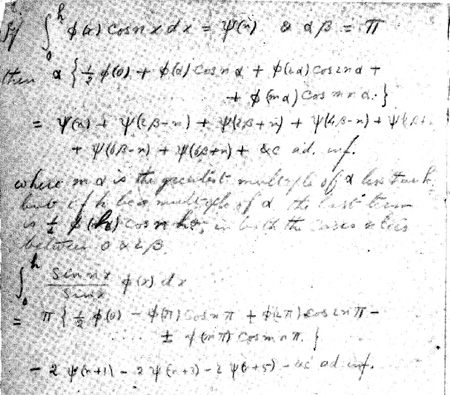 If ∫₀ʰ φ(x) cos nx dx = ψ(n) & αβ = π
then α {½ φ(0) + φ(α) cos nα + φ(2α) cos 2nα +
+ φ(mα) cos mnα.}
= ψ(n) + ψ(2β−n) + ψ(2β+n) + ψ(4β−n) + ψ(4β+
+ ψ(6β−n) + ψ(6β+n) + &c ad. inf.
where mα is the greatest multiple of α less than h,
but if h be a multiple of α the last term
is ½ φ(h) cos nh, in both the cases n lies
between 0 & 2β.
∫₀ʰ sin nx / sin x φ(x) dx
= π {½ φ(0) − φ(π) cos nπ + φ(2π) cos 2nπ −
± φ(mπ) cos mnπ.}
− 2 ψ(n+1) − 2 ψ(n+3) − 2 ψ(n+5) − &c ad inf.